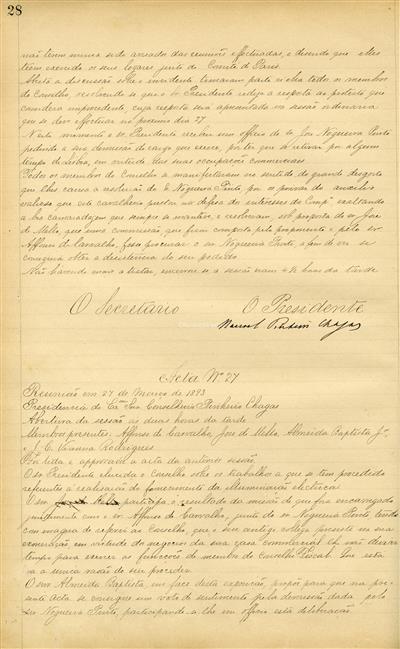 28
não terem nunca sido avisados das reuniões effectuadas, e dizendo que elles
teem exercido os seus logares junto do Comité de Paris.
Aberta a discussão sobre o incidente tomaram parte n'ella todos os membros
do Conselho resolvendo-se que o Sr Presidente redija a resposta ao protesto que
considera improcedente, cuja resposta será apresentada na sessão ordinaria
que se deve effectuar no proximo dia 27
N'este momento o Sr. Presidente recebeu um officio do Sr José Nogueira Pinto
pedindo a sua demissão do cargo que exerce, por ter que se retirar por algum
tempo de Lisboa, em virtude das suas occupações commerciaes
Todos os membros do Conselho se manifestaram no sentido do grande desgosto
que lhes causa a resolução de S. Nogueira Pinto, por os privar do auxilio
valioso que este cavalheiro prestou na defeza de interesses da Compª exaltando
a boa camaradagem que sempre se manteve, e resolveram, sob proposta do Sr José
de Mello, que uma commissão, que ficou composta pelo proponente e pelo Sr
Affonso de Carvalho, fosse procurar o Sr Nogueira Pinto, a fim de ver se
consegue obter a desistencia do seu pedido
Não havendo mais a tratar, encerrou-se a sessão eram 4 ½ horas da tarde
O Secretario O Presidente
Manoel Pinheiro Chagas
Acta Nº 27
Reunião em 27 de Março de 1893
Presidencia do Exmo Snr Conselheiro Pinheiro Chagas
Abertura da sessão ás duas horas da tarde
Membros presentes: Affonso de Carvalho, José de Mello, Almeida Baptista Jor
e J. E. Vianna Rodrigues
Foi lida e approvada a acta da anterior sessão
O Sr Presidente elucida o Conselho sobre os trabalhos a que se tem procedido
referente á realisação do fornecimento da illuminação electrica
O Snr José de Mello participa o resultado da missão de que fora encarregado
juntamente com o Sr Affonso de Carvalho, junto do Sr Nogueira Pinto, tendo
com magua de referir ao Conselho, que o seu antigo collega persiste na sua
exoneração em virtude de negocios da sua casa commercial lhe não darem
tempo para exercer as funcções de membro do Conselho Fiscal. Que esta
era a unica razão do seu proceder
O Snr Almeida Baptista, em face desta exposição, propõe para que na pre-
sente acta se consigne um voto de sentimento pela demissão dada pelo
Sr Nogueira Pinto, participando-se-lhe em officio esta deliberação